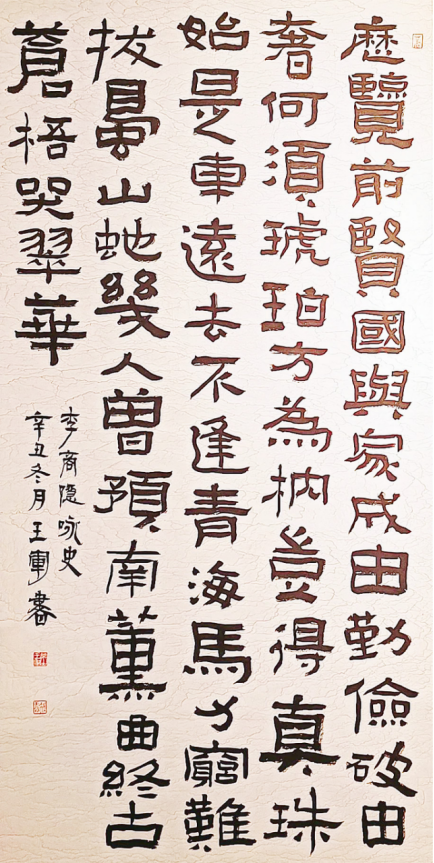 歷覽前賢國與家成由勤儉破由
奢何須琥珀方為枕豈得真珠
始是車遠去不逢青海馬力窮難
拔蜀山蛇幾人曾預南薰曲終古
蒼梧哭翠華
李商隱咏史
辛丑冬月王軍書